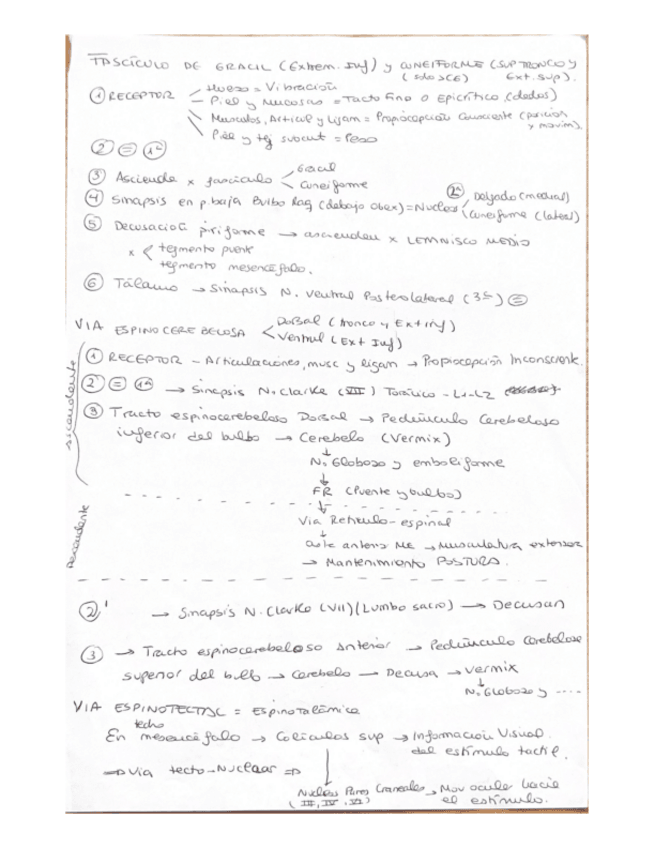 FASCÍCULO DE GRACIL (Extrem. Inf) y CUNEIFORME (SUP TRONCO y
(solo >C6) Ext. Sup).
① RECEPTOR Hueso = Vibración
Piel y Mucosas = Tacto Fino o Epicrítico (dedos)
Musculos, Articul y Ligam = Propiocepción Consciente (posición
y movim)
Piel y tej subcut = Peso
② = 1ª
③ Asciende x fascículo Gracil
Cuneiforme
④ Sinapsis en p. baja Bulbo Raq (debajo obex) = Nucleo 2ª Delgado (medial)
Cuneiforme (lateral)
⑤ Decusación piriforme → ascienden x LEMNISCO MEDIO
x tegmento puente
tegmento mesencéfalo.
⑥ Tálamo → Sinapsis N. Ventral Posterolateral (3ª) =
VIA ESPINOCEREBELOSA Dorsal (tronco y Ext inf)
Ventral (Ext Inf)
Ascendente
① RECEPTOR - Articulaciones, musc y ligam → Propiocepción Inconscient.
② = 1ª → Sinapsis N. Clarke (VII) Torácico - L1-L2
③ Tracto espinocerebeloso Dorsal → Pedúnculo Cerebeloso
inferior del bulbo → Cerebelo (Vermix)
↓
N. Globoso y emboliforme
↓
FR (Puente y bulbo)
↓
Descendente
Via Retículo-espinal
↓
asta anterior ME → Musculatura extensor
→ Mantenimiento POSTURA.
②' → Sinapsis N. Clarke (VII) (Lumbo sacro) → Decusan
③ → Tracto espinocerebeloso Anterior → Pedúnculo Cerebeloso
superior del bulb → Cerebelo → Decusa → Vermix
↓
N. Globoso y ....
VIA ESPINOTECTAL = Espinotalámica
techo
En mesencéfalo → Colículos sup → Información Visual
del estímulo tactil.
⇒ Via tecto-Nuclear ⇒
Nucleos Pares Craneales → Mov ocular hacia
(III, IV, VI) el estímulo.